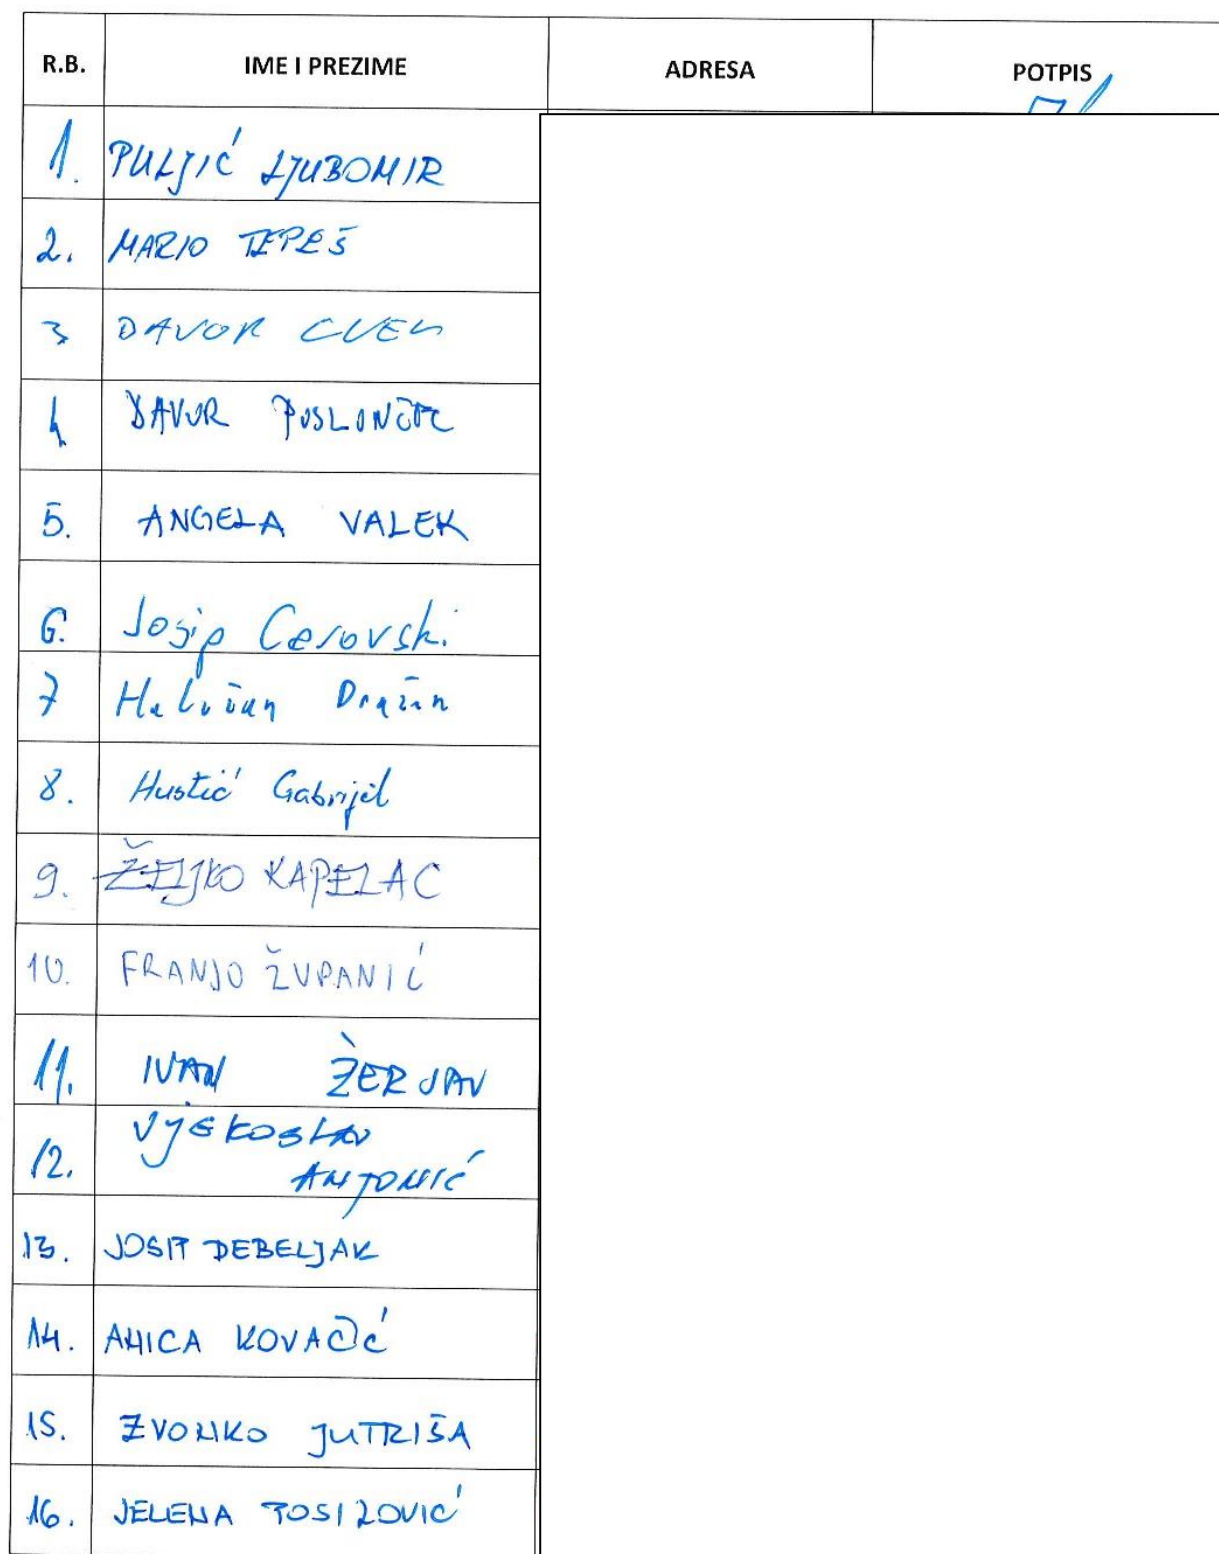 R.B. IME I PREZIME ADRESA POTPIS
1. PULJIĆ LJUBOMIR
2. MARIO TEPEŠ
3 DAVOR CVEK
4 DAVOR POSLONČEC
5. ANGELA VALEK
6. Josip Cerovski
7 Dražen
8. Hustić Gabrijel
9. ŽELJKO KAPELAC
10. FRANJO ŽUPANIĆ
11. IVAN ŽERJAV
VJEKOSLAV
12. ANTONIĆ
13. JOSIP DEBELJAK
14. ANICA KOVAČIĆ
15. ZVONKO JUTRIŠA
16. JELENA